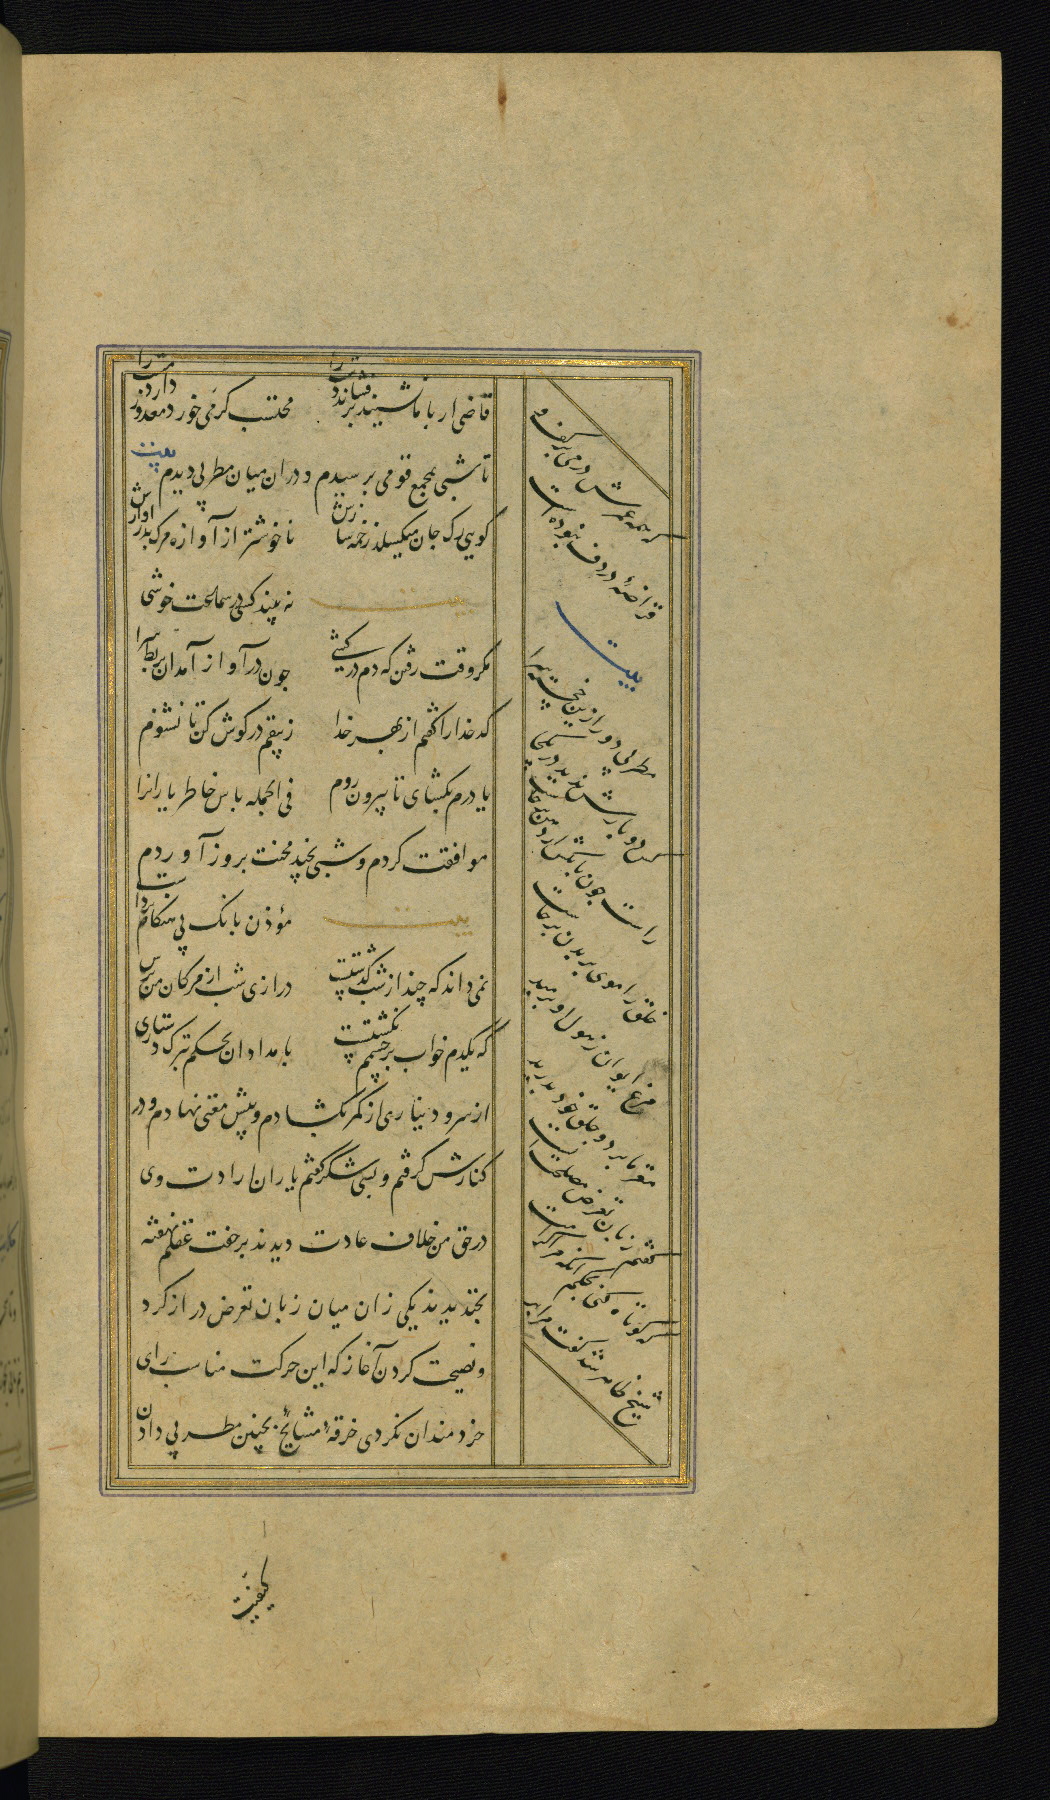 قاضی ار با ما نشیند برفشاند دست را
محتسب گر می خورد معذور دارد مست را
تا شبی بمجمع قومی برسیدم و در ان میان مطربی دیدم بیت
کویی رک جان میکسلد زخمه ساز‌ش
ناخوشتر از آوازه مرک پدر آوازش
بیت
نه بیند کسی در سماعت خوشی
مکر وقت رفتن که دم در کشی
چون در آواز آمد ان بربط سرا
کدخدا را کفتم از بهر خدا
زیبقم در کوش کن تا نشنوم
یا درم بکشای تا بیرون روم
فی الجمله پاس خاطر یاران را
موافقت کردم و شبی بچند محنت بروز آوردم
بیت
مؤذن بانک بی هنکام برداشت
نمی داند که چند از شب کذشتست
درازی شب از مژکان من پرس
که یکدم خواب بر چشمم نکشتست
بامدادان بحکم تبرک دستاری
از سر و دیناری از کمر بکشادم و پیش مغنی نهادم و در
کنارش کرفتم و بسی شکر کفتم یاران ارادت وی
در حق من خلاف عادت دیدند بر خفت عقلم نهفته
بخندیدند یکی زان میان زبان تعرض دراز کرد
و نصیحت کردن آغاز که این حرکت مناسب رای
خردمندان نکردی خرقه مشایخ بچنین مطربی دادن
که همه عمرش درمی بر کف
قراضه در دف نبوده است
بیت
مطربی دور ازین خجسته سرا
کس دوبارش ندید در یکجا
راست چون بانکش از دهن برخاست
خلق را موی بر بدن برخاست
مرغ ایوان ز هول او بپرید
مغز ما برد و حلق خود بدرید
کفتم زبان تعرض مصلحت
که کوتاه کنی بحکم آنکه مرا کرامت
شیخ ظاهر شد کفت مرا بر
کیفیت